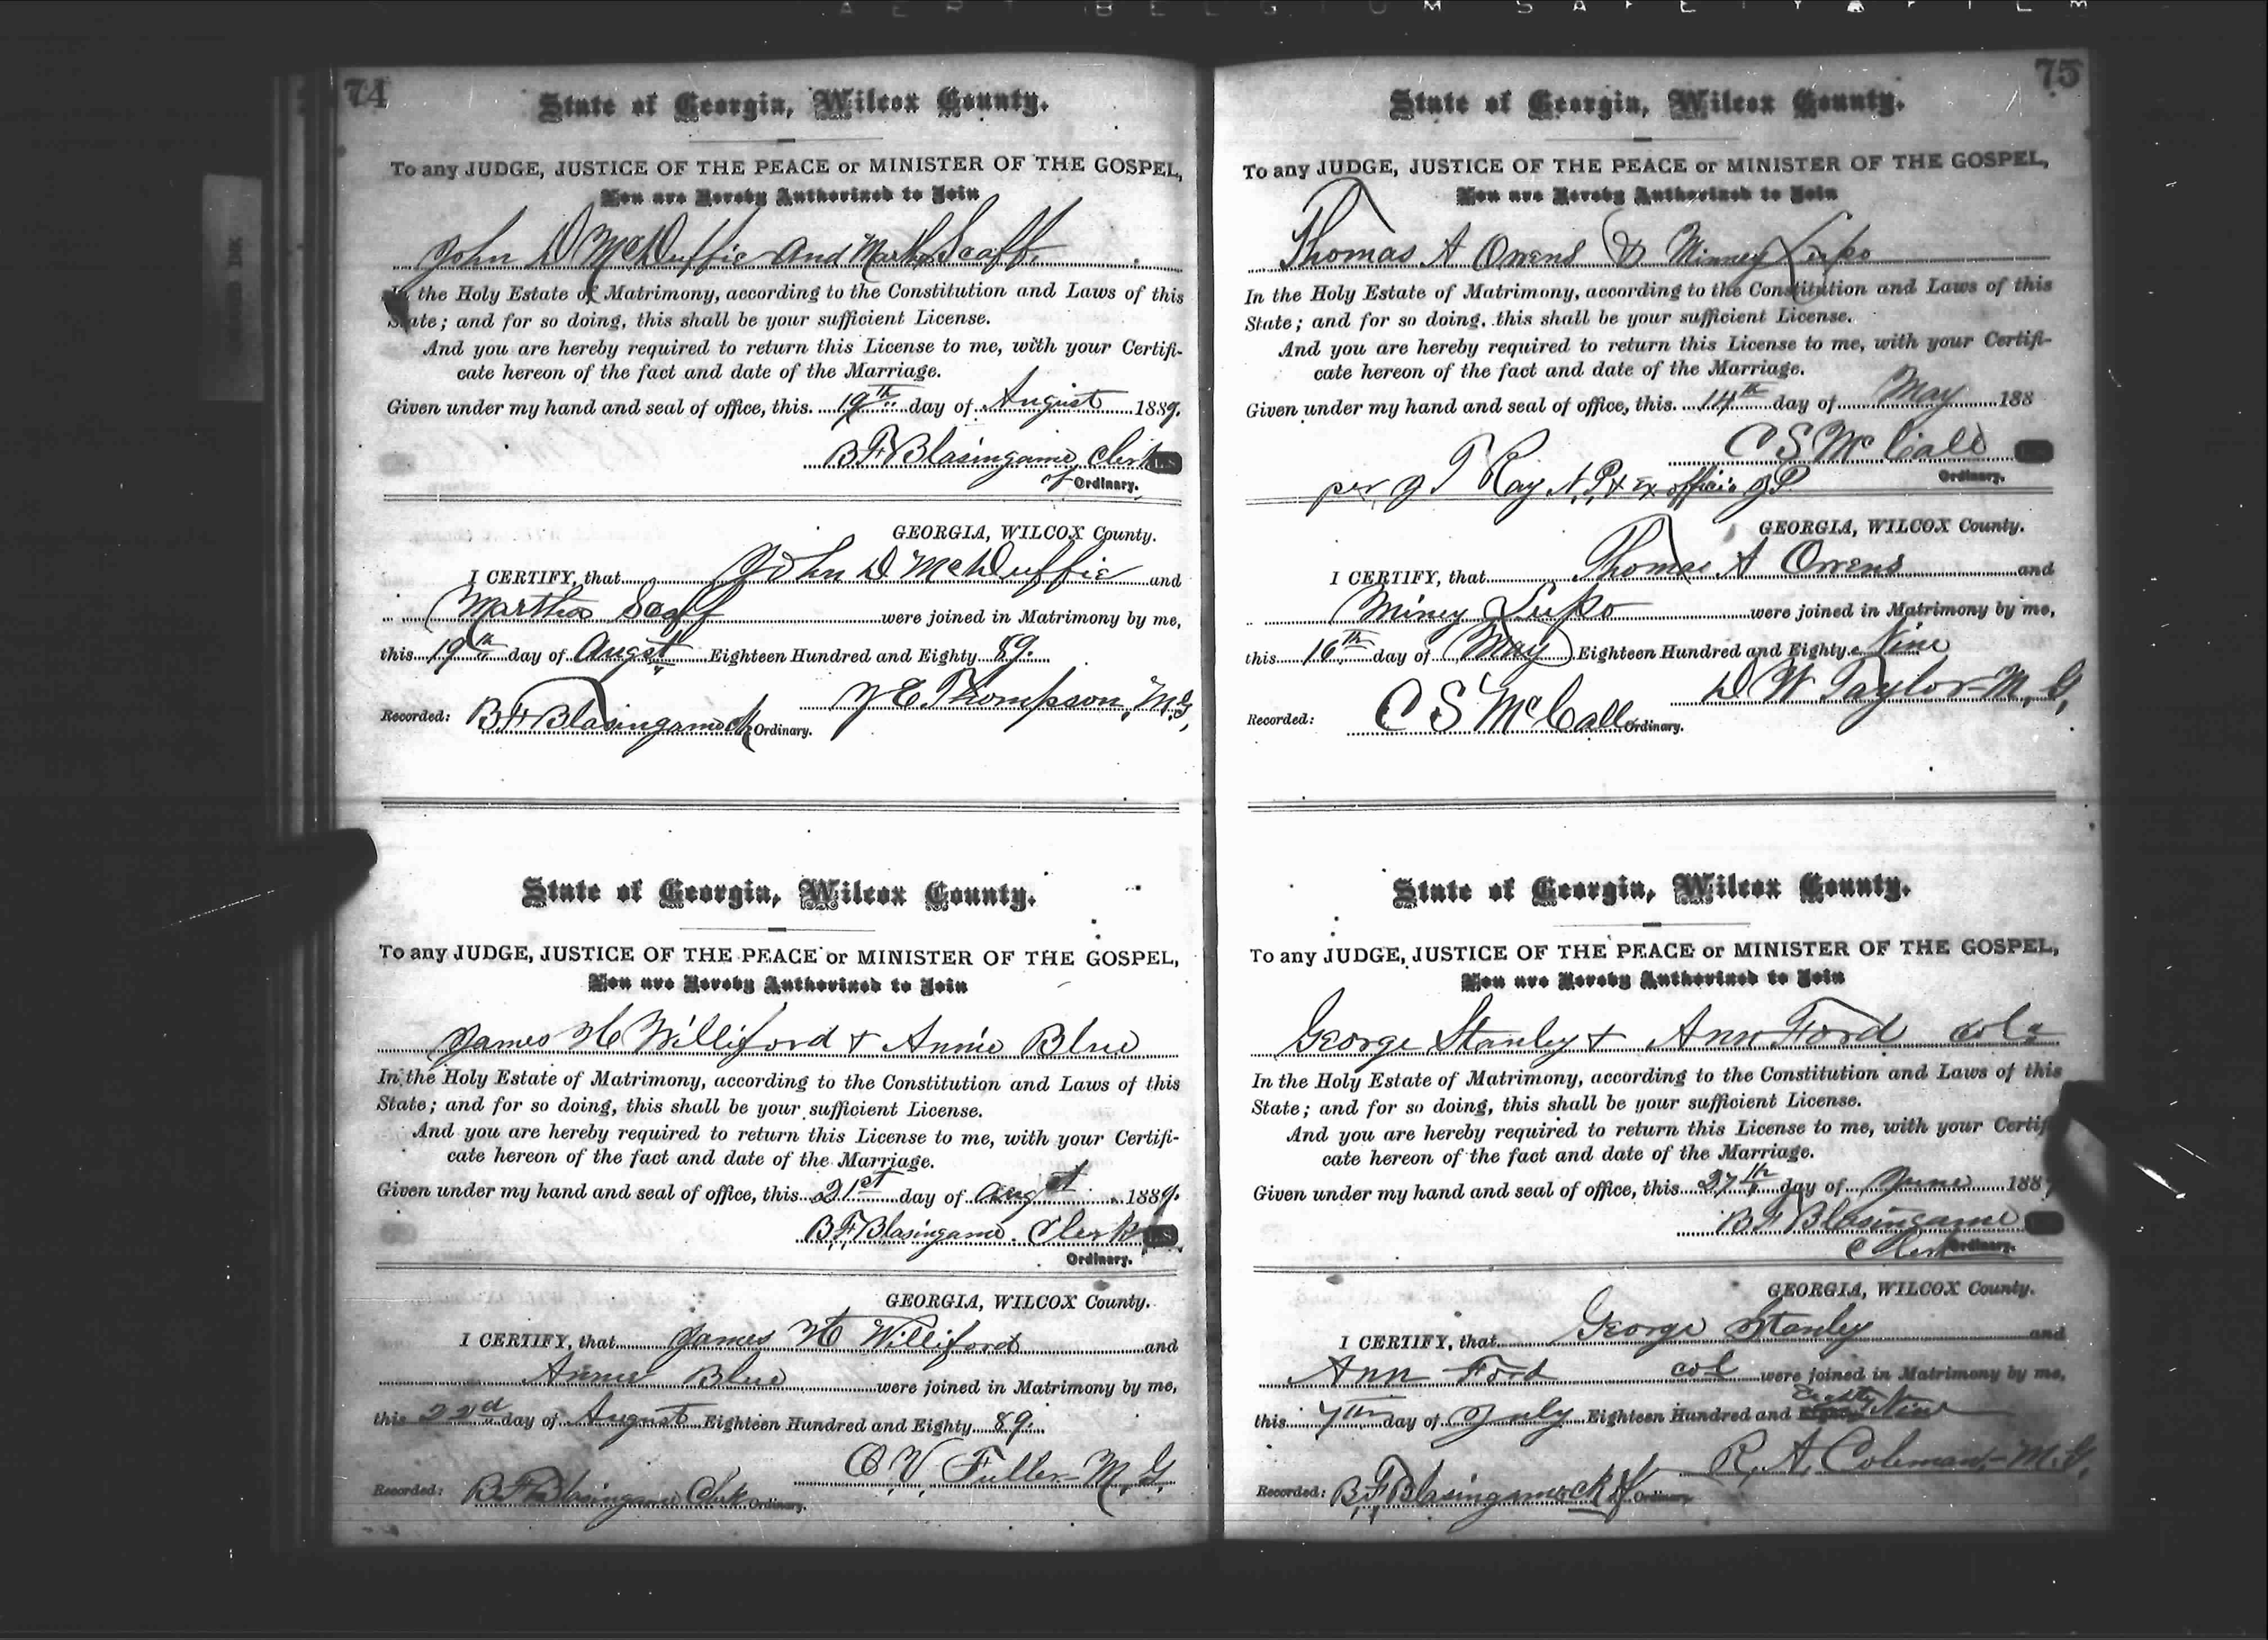 74
State of Georgia, Wilcox County.
To any JUDGE, JUSTICE OF THE PEACE or MINISTER OF THE GOSPEL,
You are Hereby Authorized to Join
John D McDuffie and Martha Scaff
In the Holy Estate of Matrimony, according to the Constitution and Laws of this
State; and for so doing, this shall be your sufficient License.
And you are hereby required to return this License to me, with your Certifi-
cate hereon of the fact and date of the Marriage.
Given under my hand and seal of office, this 19th day of August 1889.
B F Blasingame, Clerk L.S
of Ordinary.
GEORGIA, WILCOX County.
I CERTIFY, that John D McDuffie and
Martha Scaff were joined in Matrimony by me,
this 19th day of Augst Eighteen Hundred and Eighty 89.
Thompson, M.G,
Recorded: B F Blasingame Ck Ordinary.
State of Georgia, Wilcox County.
To any JUDGE, JUSTICE OF THE PEACE or MINISTER OF THE GOSPEL,
You are Hereby Authorized to Join
James H Williford & Annie Blue
In the Holy Estate of Matrimony, according to the Constitution and Laws of this
State; and for so doing, this shall be your sufficient License.
And you are hereby required to return this License to me, with your Certifi-
cate hereon of the fact and date of the Marriage.
Given under my hand and seal of office, this 21st day of Augst 1889.
B F Blasingame. Clerk L.S
Ordinary.
GEORGIA, WILCOX County.
I CERTIFY, that James H Williford and
Annie Blue were joined in Matrimony by me,
this 22d day of August Eighteen Hundred and Eighty 89.
C V Fuller M, G,
Recorded: B F Blasingame Clerk Ordinary.
75
State of Georgia, Wilcox County.
To any JUDGE, JUSTICE OF THE PEACE or MINISTER OF THE GOSPEL,
You are Hereby Authorized to Join
Thomas A Owens & Minney Lupo
In the Holy Estate of Matrimony, according to the Constitution and Laws of this
State; and for so doing, this shall be your sufficient License.
And you are hereby required to return this License to me, with your Certifi-
cate hereon of the fact and date of the Marriage.
Given under my hand and seal of office, this 14th day of May 188
C S McCall
Ordinary.
per J T Ray N.P. & Ex officio J.P.
GEORGIA, WILCOX County.
I CERTIFY, that Thomas A Owens and
Miney Lupo were joined in Matrimony by me,
this 16th day of May Eighteen Hundred and Eighty Nine
D W Taylor M, G,
Recorded: C S McCall Ordinary.
State of Georgia, Wilcox County.
To any JUDGE, JUSTICE OF THE PEACE or MINISTER OF THE GOSPEL,
You are Hereby Authorized to Join
George Stanley & Ann Ford col
In the Holy Estate of Matrimony, according to the Constitution and Laws of this
State; and for so doing, this shall be your sufficient License.
And you are hereby required to return this License to me, with your Certif
cate hereon of the fact and date of the Marriage.
Given under my hand and seal of office, this 27th day of June 188
B F Blasingame
Clerk Ordinary.
GEORGIA, WILCOX County.
I CERTIFY, that George Stanley and
Ann Ford col were joined in Matrimony by me,
this 7th day of July Eighteen Hundred and Eighty Nine
R. A. Coleman M.G.
Recorded: B F Blasingame Ck Ordinary